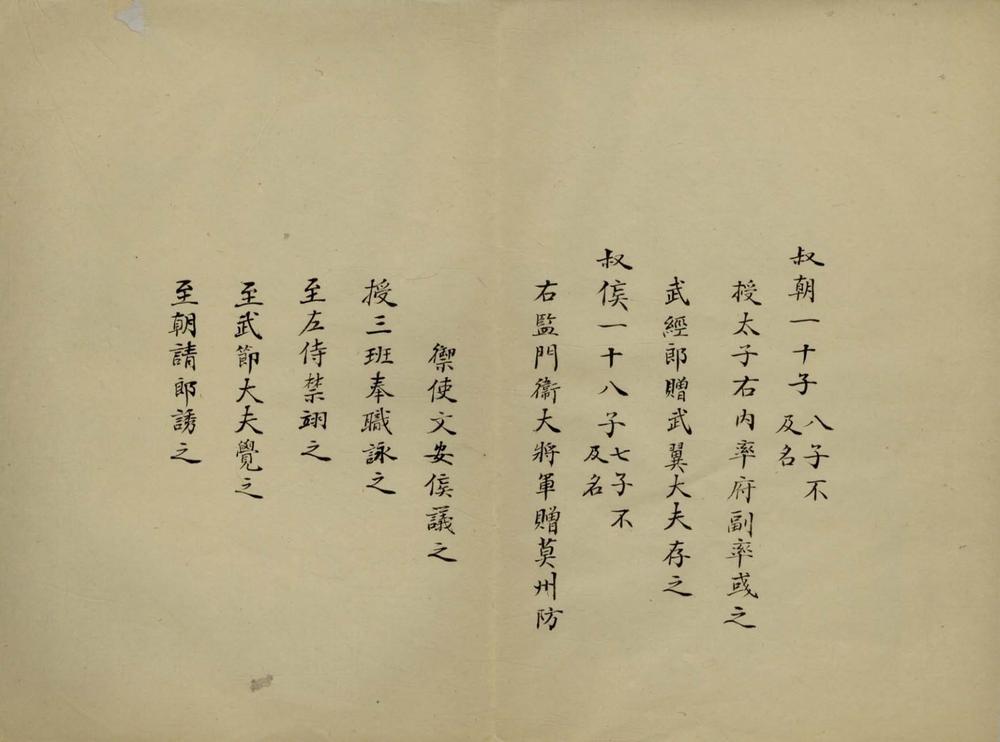 叔朝一十子八子不及名
授太子右内率府副率彧之
武經郎贈武翼大夫存之
叔侯一十八子七子不及名
右監門衞大將軍贈莫州防
禦使文安侯議之
授三班奉職詠之
至左侍禁翊之
至武節大夫覺之
至朝請郎誘之